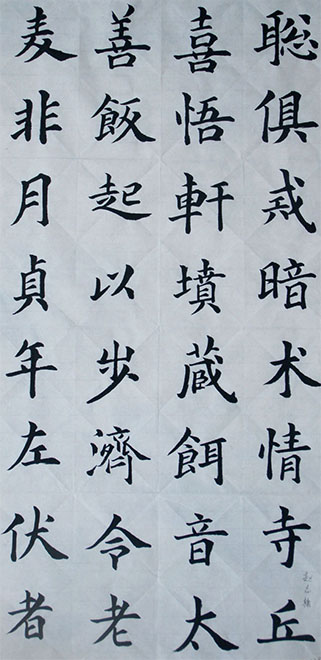 聡俱戒暗术情寺丘
喜悟軒墳蔵餌音太
善飯起以步濟令老
麦非月貞年左伏者